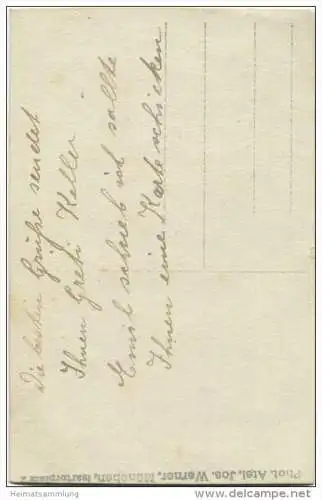 Die besten Grüße sendet
Ihnen Greti Keller
Emil schrieb ich sollte
Ihnen eine Karte schicken
Phot. Atel. Jos. Werner, München, Isartorplatz
© Heimatsammlung
www.ansichtskartenversand.com